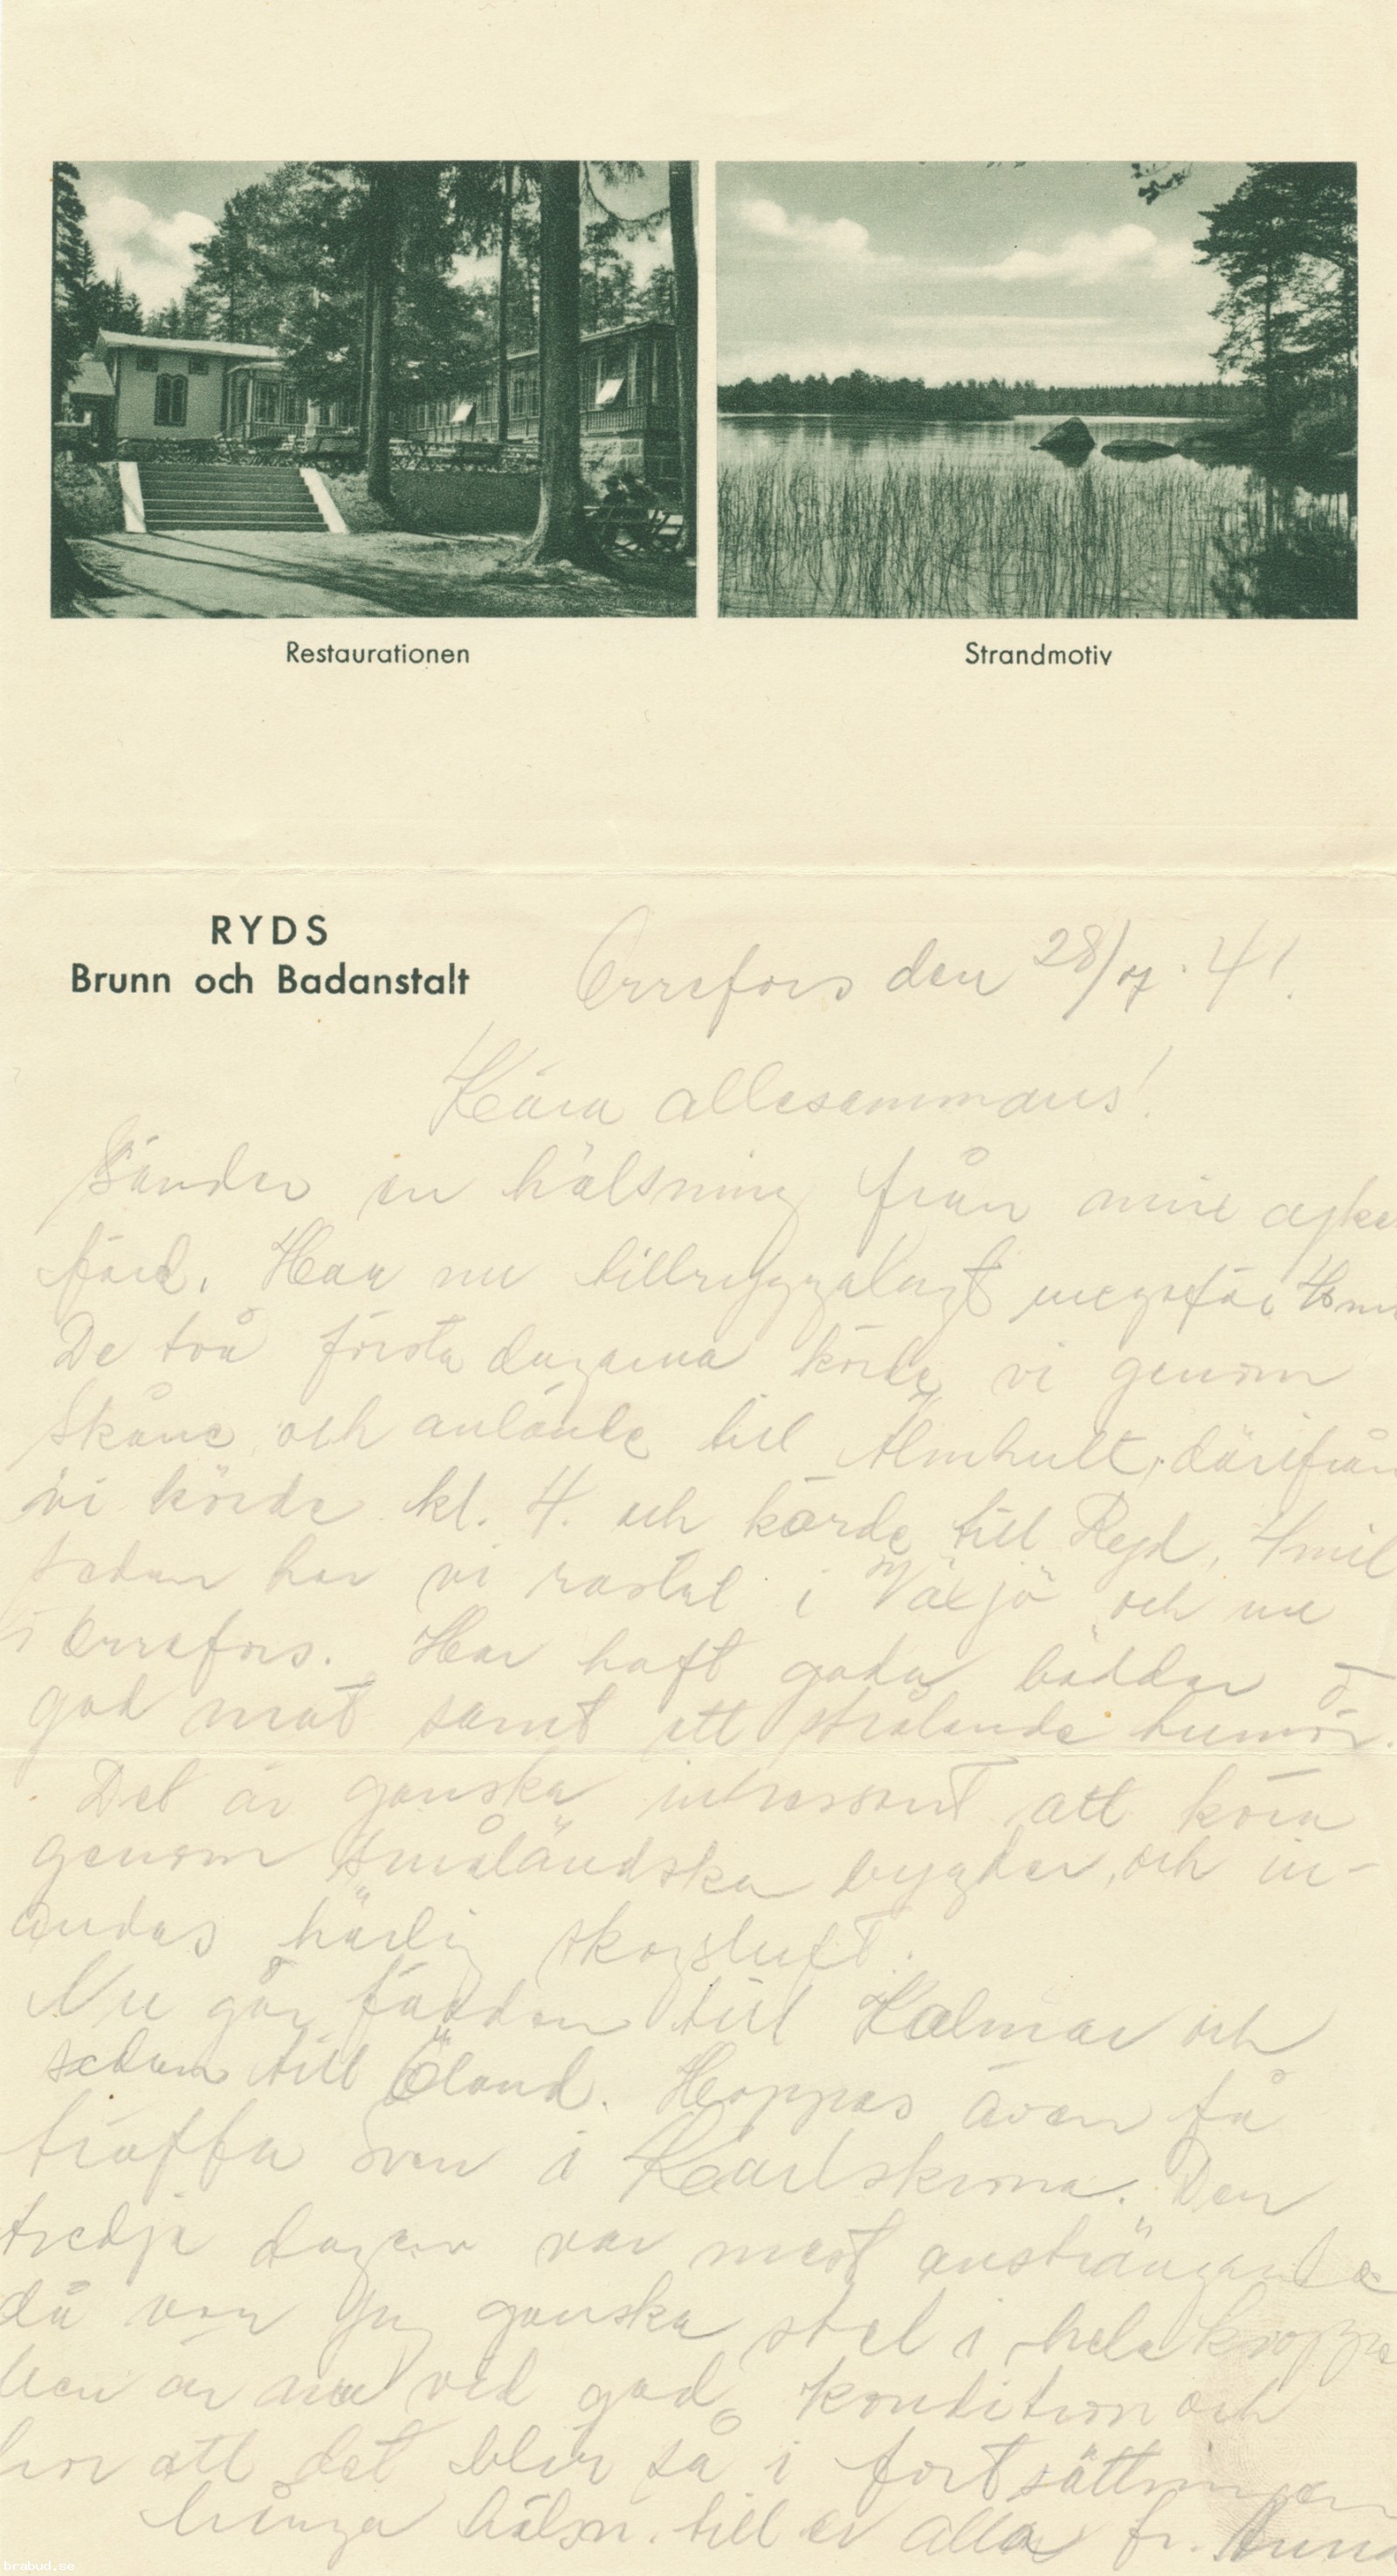 Restaurationen
Strandmotiv
RYDS
Brunn och Badanstalt
Orrefors den 28/7. 41.
Kära allesammans!
Sänder en hälsning från min cyke
färd. Har nu tillryggalagt ungefär
De två första dagarna körde vi genom
Skåne och anlände till Älmhult, därifrån
vi körde kl. 4. och körde till Ryd, 4 mil
sedan har vi rastat i Växjö och nu
i Orrefors. Har haft goda bäddar o
god mat samt ett strålande humör.
Det är ganska intressant att köra
genom småländska bygder, och in-
andas härlig skogsluft.
Nu går färden till Kalmar och
sedan till Öland. Hoppas även få
träffa Sven i Karlskrona. Den
tredje dagen var mest ansträngande
då var jag ganska stel i hela kroppe
men är nu vid god kondition och
tror att det blir så i fortsättningen
Många hälsn. till er alla fr.
brabud.se